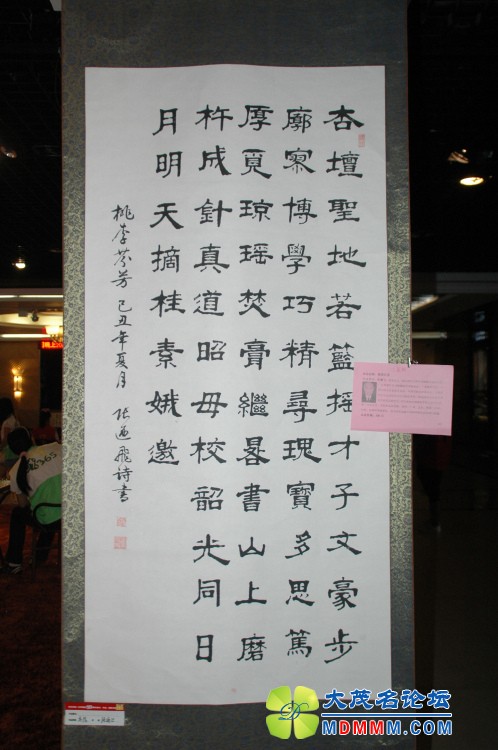 杏壇聖地若籃搖才子文豪步
廓寮博學巧精尋瑰寶多思篤
厚覓琼瑶焚膏繼晷書山上磨
杵成針真道昭母校韶光同日
月明天摘桂素娥邀
桃李芬芳 己丑年夏月 张道飛詩書
大茂名论坛
MDMMM.COM